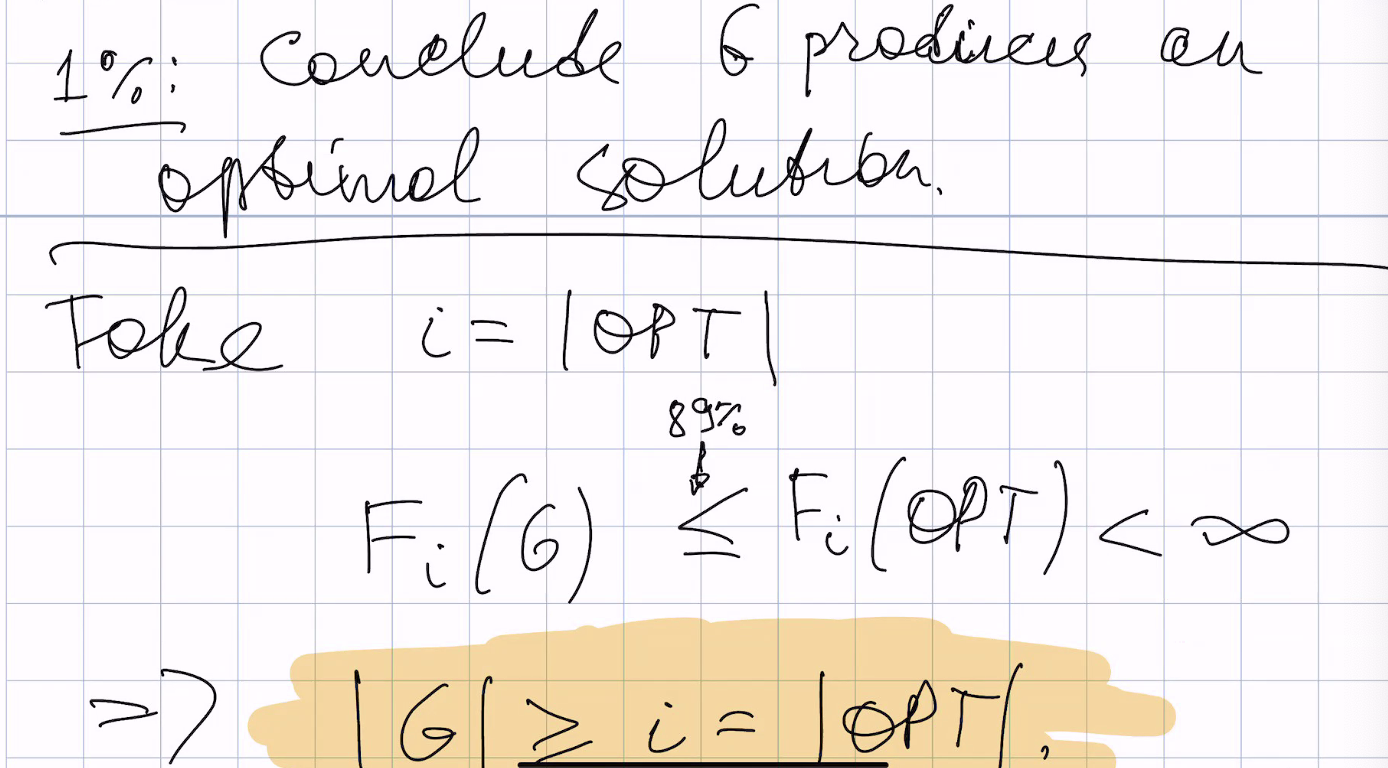 1%: Conclude G produces an
optimal solution.
Take i = |OPT|
89%
Fᵢ(G) ≤ Fᵢ(OPT) < ∞
=> |G| ≥ i = |OPT|.